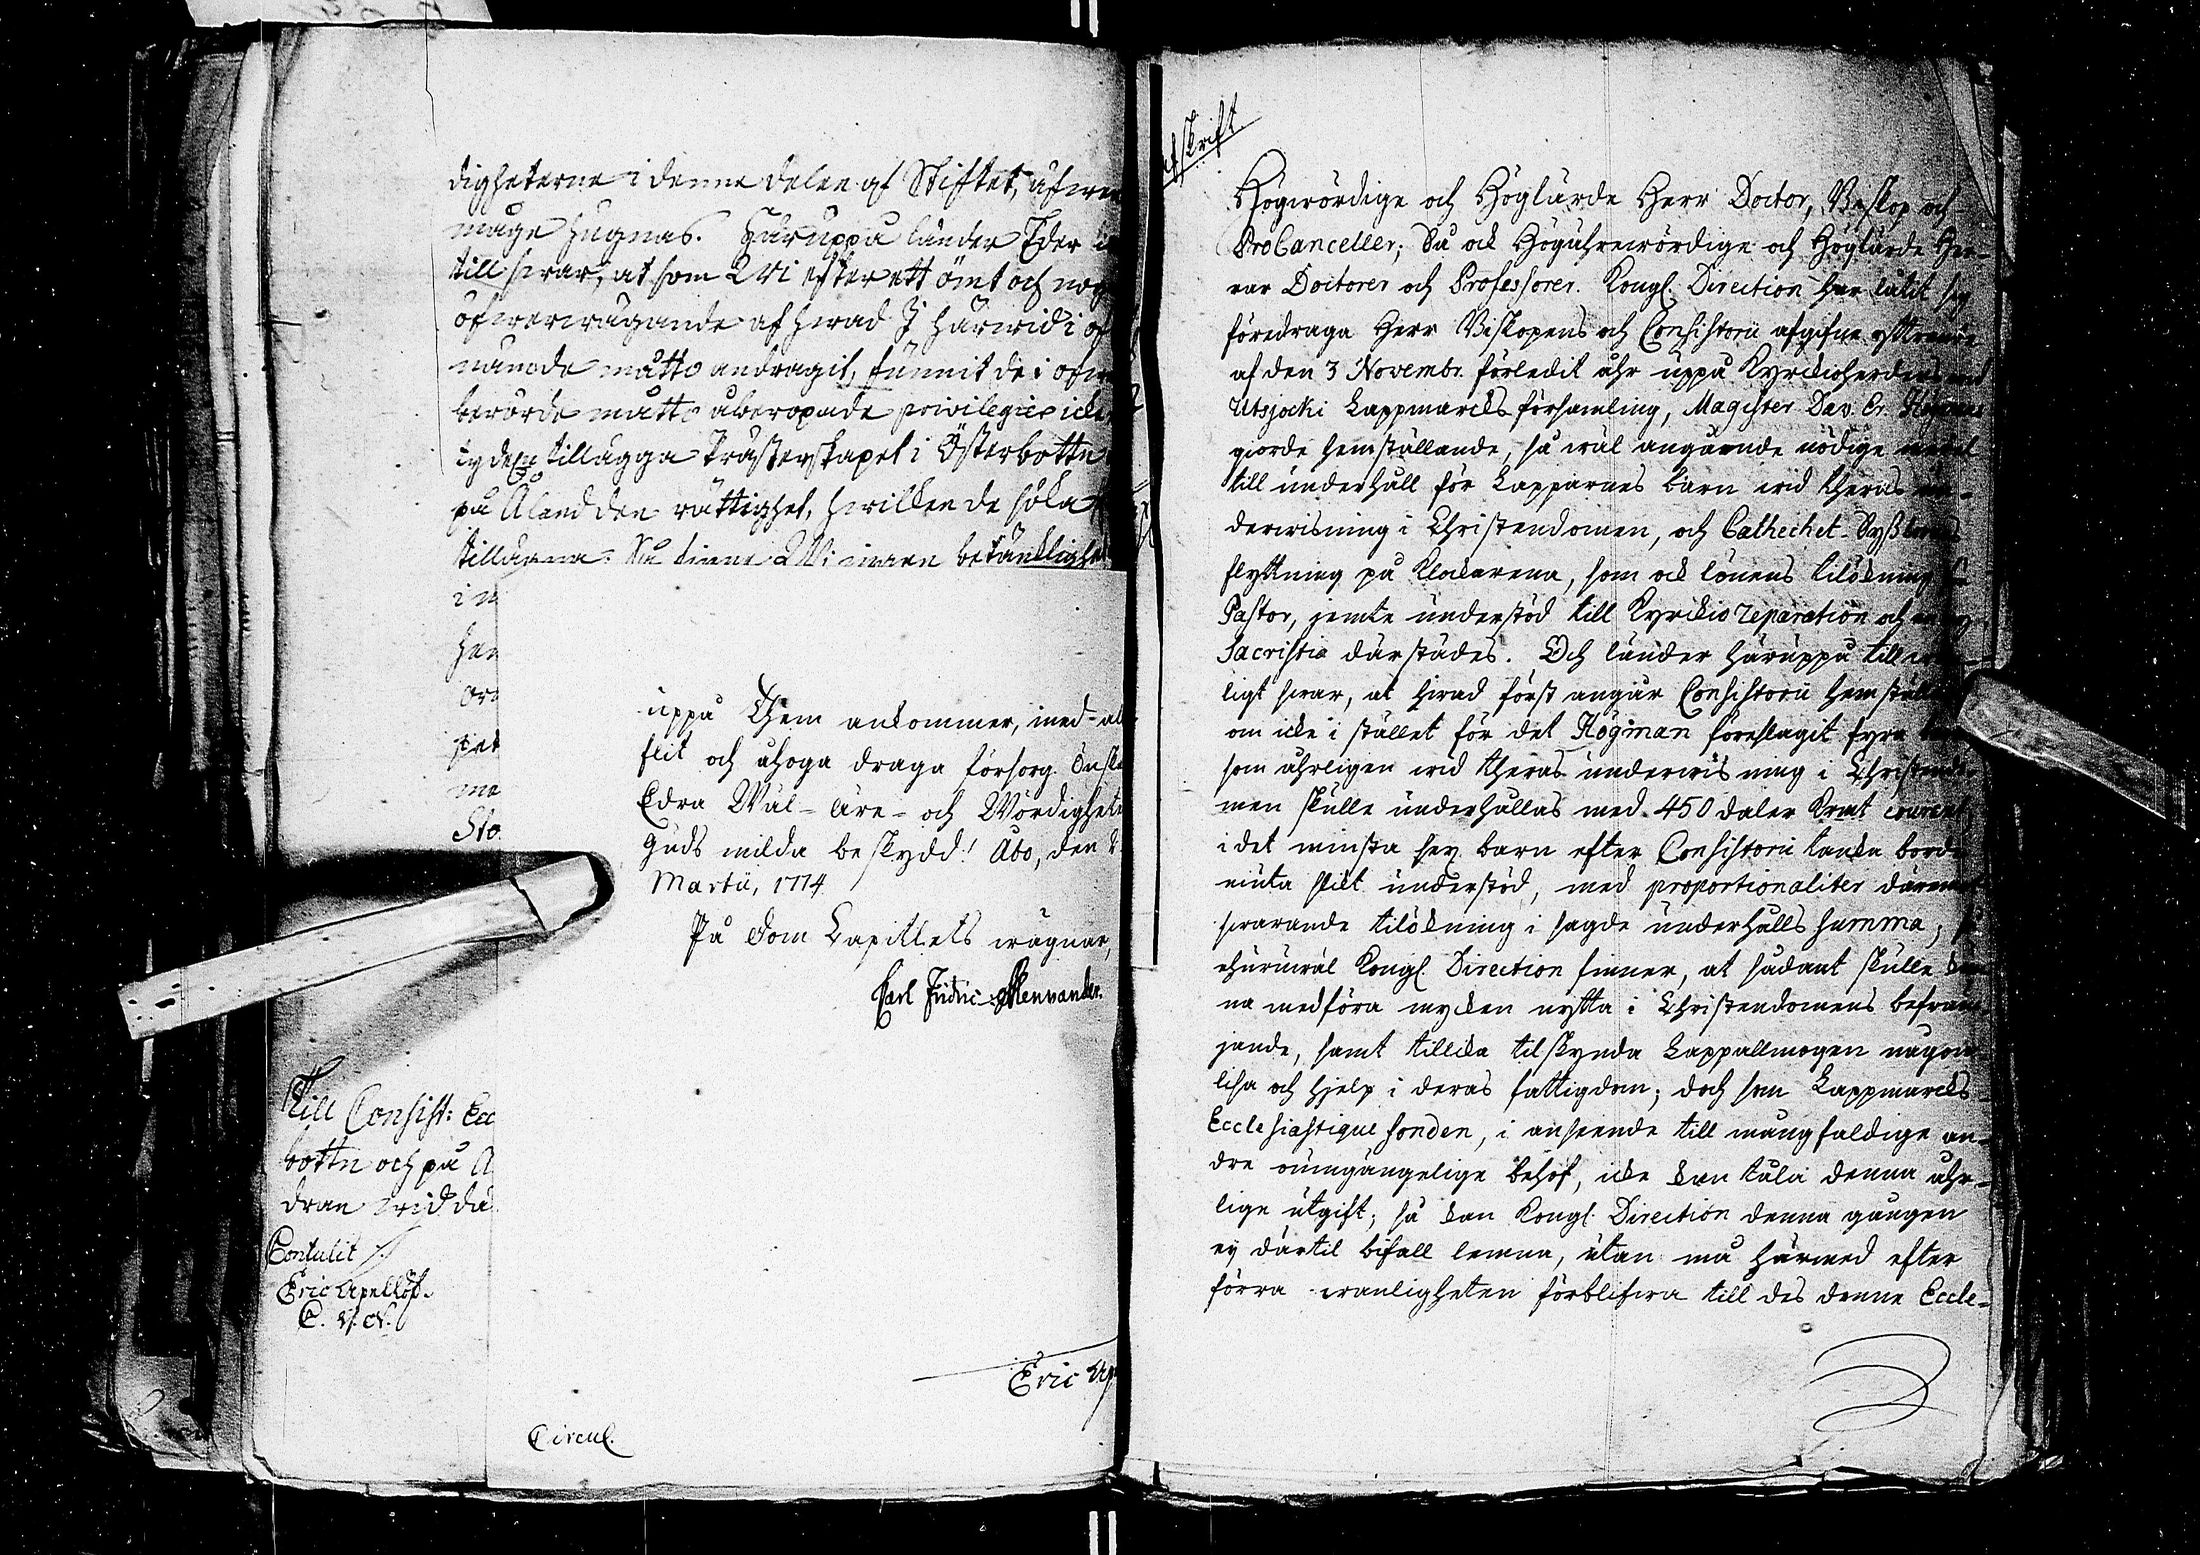 digheterne i denne delen af Stiftet, äfwen
måge hugnas. Häruppå länder Eder
till swar, at som Wi efter ett ömt och nog
öfwerwägande af hwad J härwid i of
nämde måtto andragit, funnit de i ofwan
berörde måtto åberopade privilegier icke
tillägga Prästerskapet i Österbottn
på Åland den rättighet, hwilken de söka
tillägna: Så finne Wi ingen betänklighet
i n
han
ord
pet
me
Sto
uppå Them ankommer, med all
flit och åhoga draga försorg. Önska
Edra Wäl- äre- och Wördigheter
Guds milda beskydd! Åbo, den
Martii, 1774.
På Dom Capitlets wägnar,
Carl Fridric Mennander.
Till Consist: Ecc
bottn och på Å
dran wid då
Contulit
Eric Apellöf.
C. V. N.
Eric Ap
Circul.
Afskrift.
Högwördige och Höglärde Herr Doctor, Biskop och
ProCanceller; Så ock Högährewördige och Höglärde Her-
rar Doctorer och Professorer. Kongl. Direction har låtit sig
föredraga Herr Biskopens och Consistorii afgifne yttrande
af den 3 Novembr. förledit åhr uppå Kyrckioherdens wid
Utsjocki Lappmarcks församling, Magister Dav. Er. Högmans
giorde hemställande, så wäl angående nödige medel
till underhåll för Lapparnes barn wid theras un-
derwisning i Christendomen, och Cathechet-Sysslornas
flyttning på Klockarena, som ock lönens tilökning för
Pastor, jemte understöd till Kyrckio reparation och en ny
Sacristia därstädes. Och länder häruppå till wän-
ligt swar, at hwad först angår Consistorii hemställande
om icke i stället för det Högman föreslagit fyra barn
som åhrligen wid theras underwisning i Christendo-
men skulle underhållas med 450 daler Kmt courant,
i det minsta sex barn efter Consistorii tancka borde
niuta slikt understöd, med proportionaliter däremot
swarande tilökning i sagde underhålls summa; så
ehuruwäl Kongl. Direction finner, at sådant skulle kun-
na medföra mycken nytta i Christendomens befräm-
jande, samt tillika tilskynda Lappallmogen någon
lisa och hjelp i deras fattigdom; doch som Lappmarcks
Ecclesiastique fonden, i anseende till mångfaldige an-
dre oumgängelige behof, icke kan tåla denna åhr-
lige utgift; så kan Kongl. Direction denna gången
ey därtil bifall lemna, utan må härmed efter
förra wanligheten förblifwa till des denne Eccle-